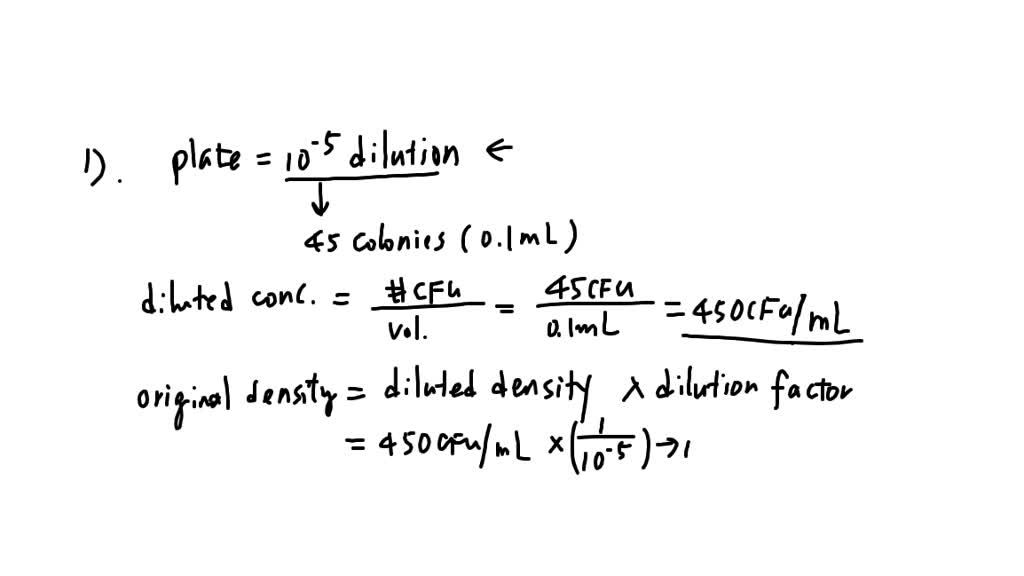 1). plate = 10⁻⁵ dilution ←
↓
45 colonies (0.1mL)
diluted conc. = #CFU / vol. = 45CFU / 0.1mL = 450CFU/mL
original density = diluted density × dilution factor
= 450CFU/mL × (1 / 10⁻⁵) → 1